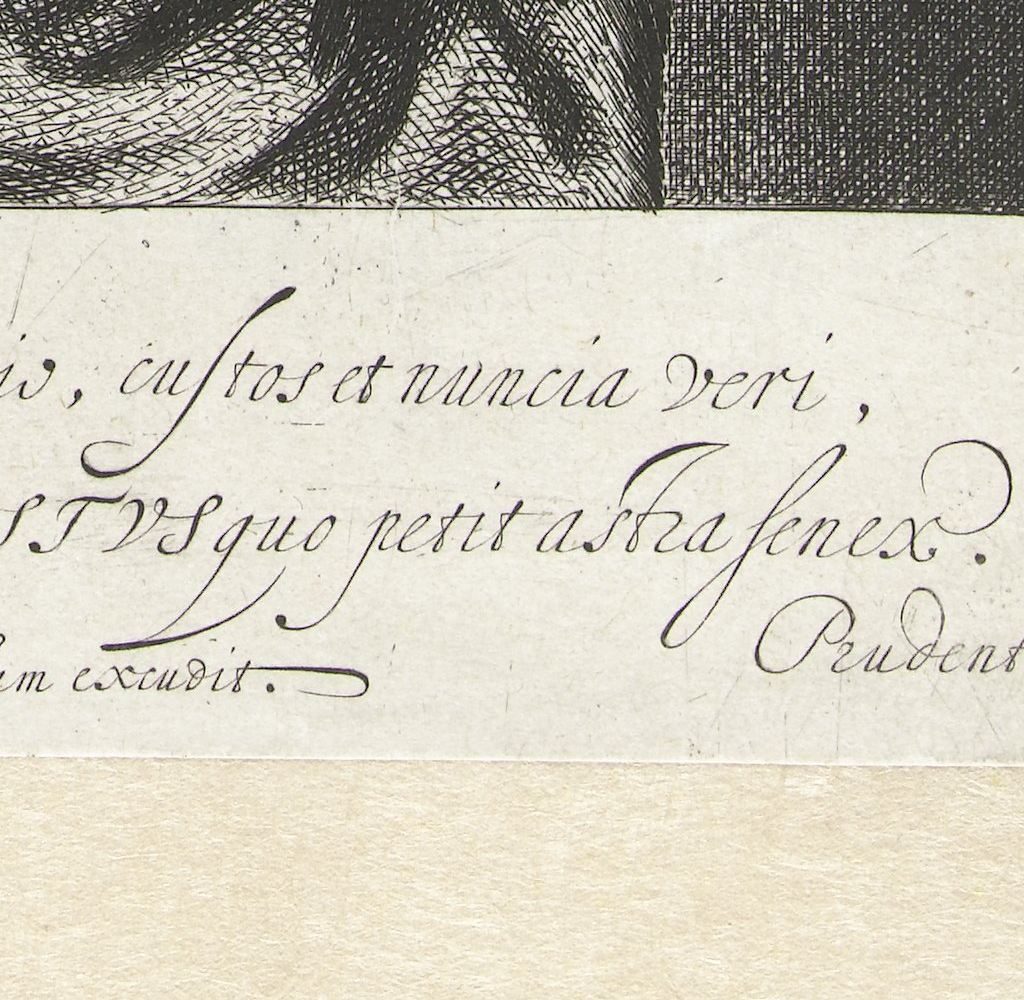 io, custos et nuncia veri,
STVS quo petit astra senex.
um excudit. Prudent